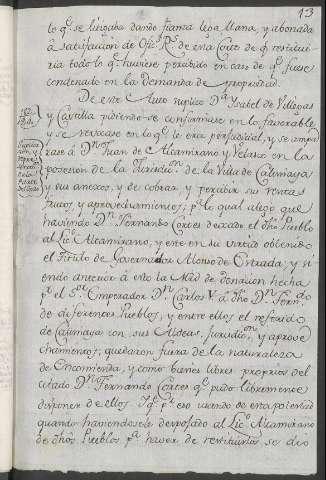 13
lo q.e se litigaba dando fianza lega llana, y abonada
à satisfaccion de Ofic.s R.s de esta Corte de q.e restitui-
ria todo lo q.e huviese percibido en caso de q.e fuese
condenado en la demanda de propriedad.
De este Auto suplicò D.a Isabel de Villegas
y Castilla pidiendo se confirmase en lo favorable
y se revocase en lo q.e le era perjudicial, y se ampa-
rase à D.n Juan de Altamirano y Velasco en la
posesion de la Jurisdic.on de la Villa de Calimaya
y sus anexos, y de cobrar y percibir sus rentas
frutos y aprovechamientos, p.a lo qual alegò que
haviendo D.n Fernando Cortes dexado el dho Pueblo
al Lic.o Altamirano, y este en su virtud obtenido
el Titulo de Governador Alonso de Estrada; y si-
endo anterior à esto la Mrd de donacion hecha
p.r el S.or Emperador D.n Carlos V. a dho D.n Fern.do
de diferentes Pueblos, y entre ellos el referido
de Calimaya con sus Aldeas, Jurisdic.on y aprove-
chamientos; quedaron fuera de la naturaleza
de Encomienda, y como bienes libres proprios del
citado D.n Fernando Cortes q.e pudo libremente
disponer de ellos. Y q.e p.r eso usando de esta potestad
quando haviendosele despojado al Lic.o Altamirano
de dhos Pueblos p.a haver de restituirlos se dio